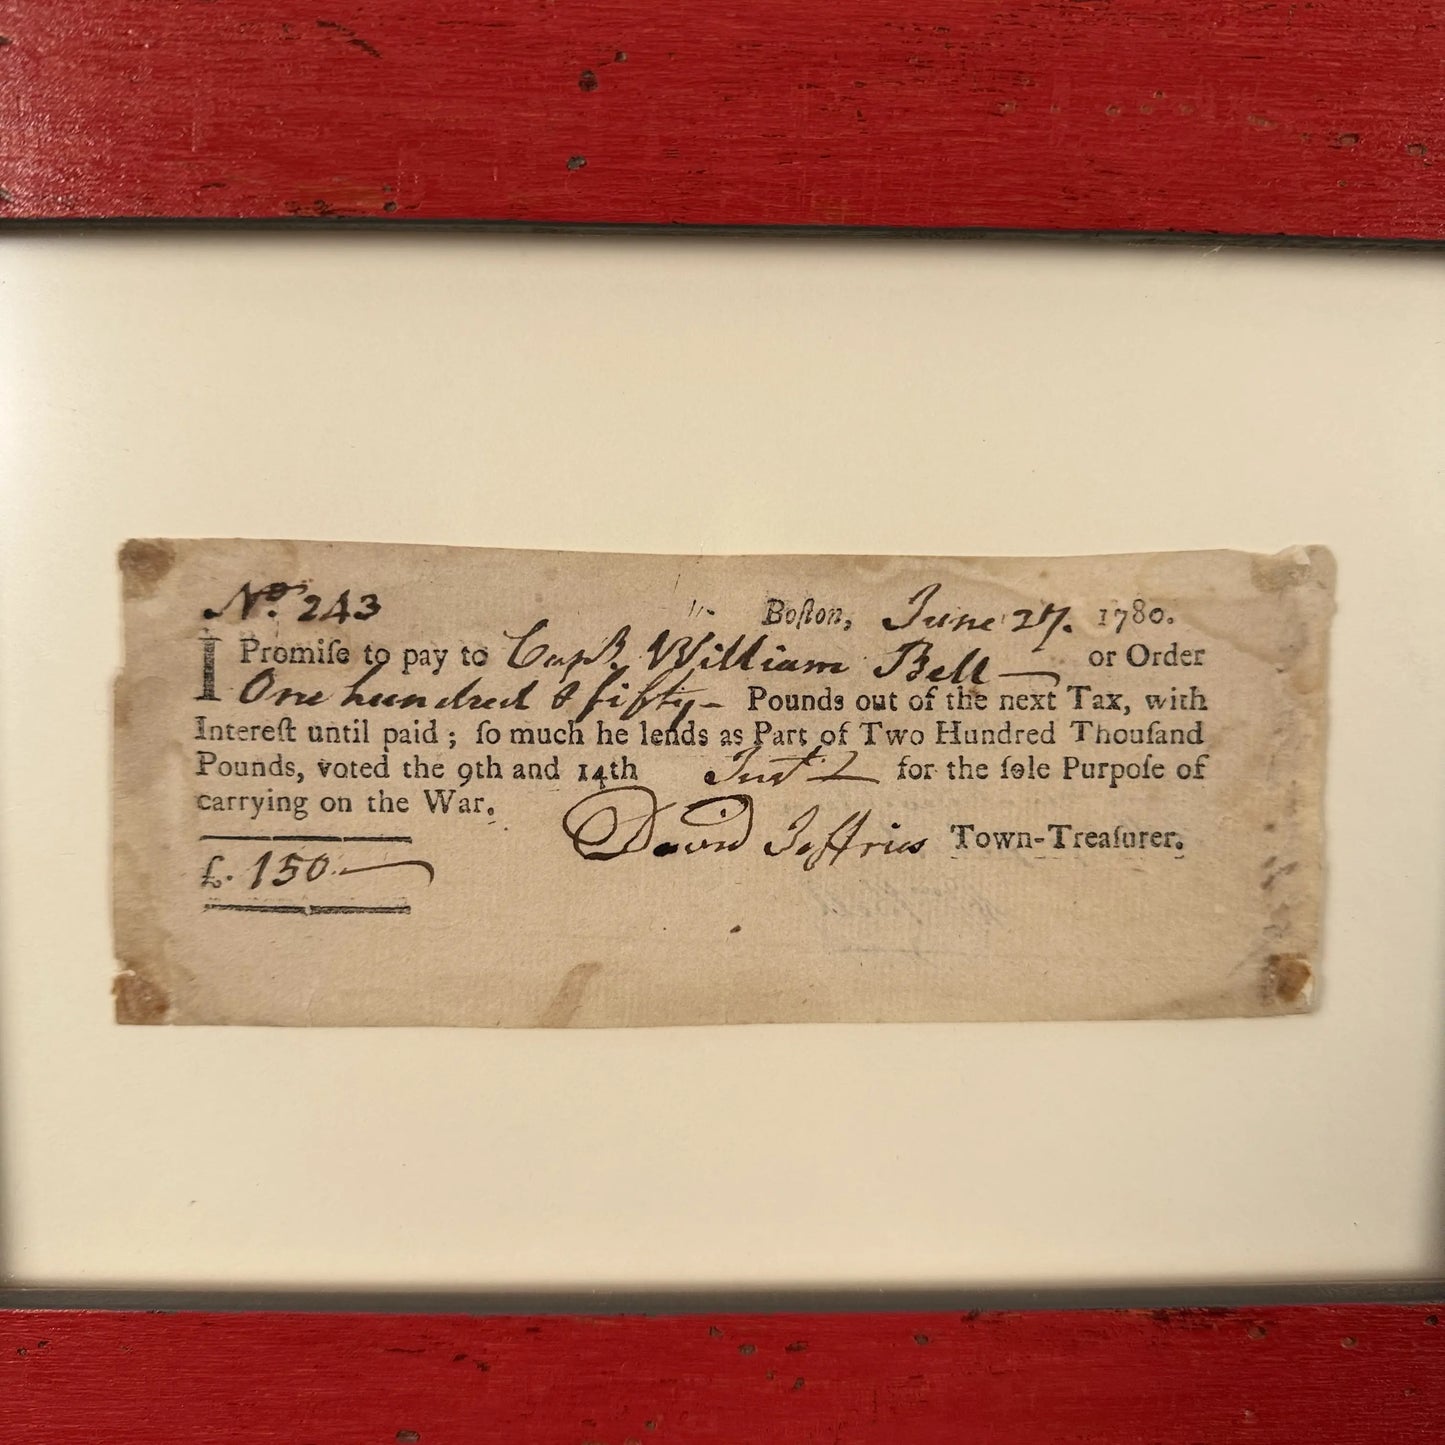 No. 243 Boſton, June 27. 1780.
I Promiſe to pay to Capt. William Bell — or Order
One hundred & fifty - Pounds out of the next Tax, with
Intereſt until paid ; ſo much he lends as Part of Two Hundred Thouſand
Pounds, voted the 9th and 14th Inst for the ſole Purpoſe of
carrying on the War.
David Jeffries Town-Treaſurer.
£. 150 —